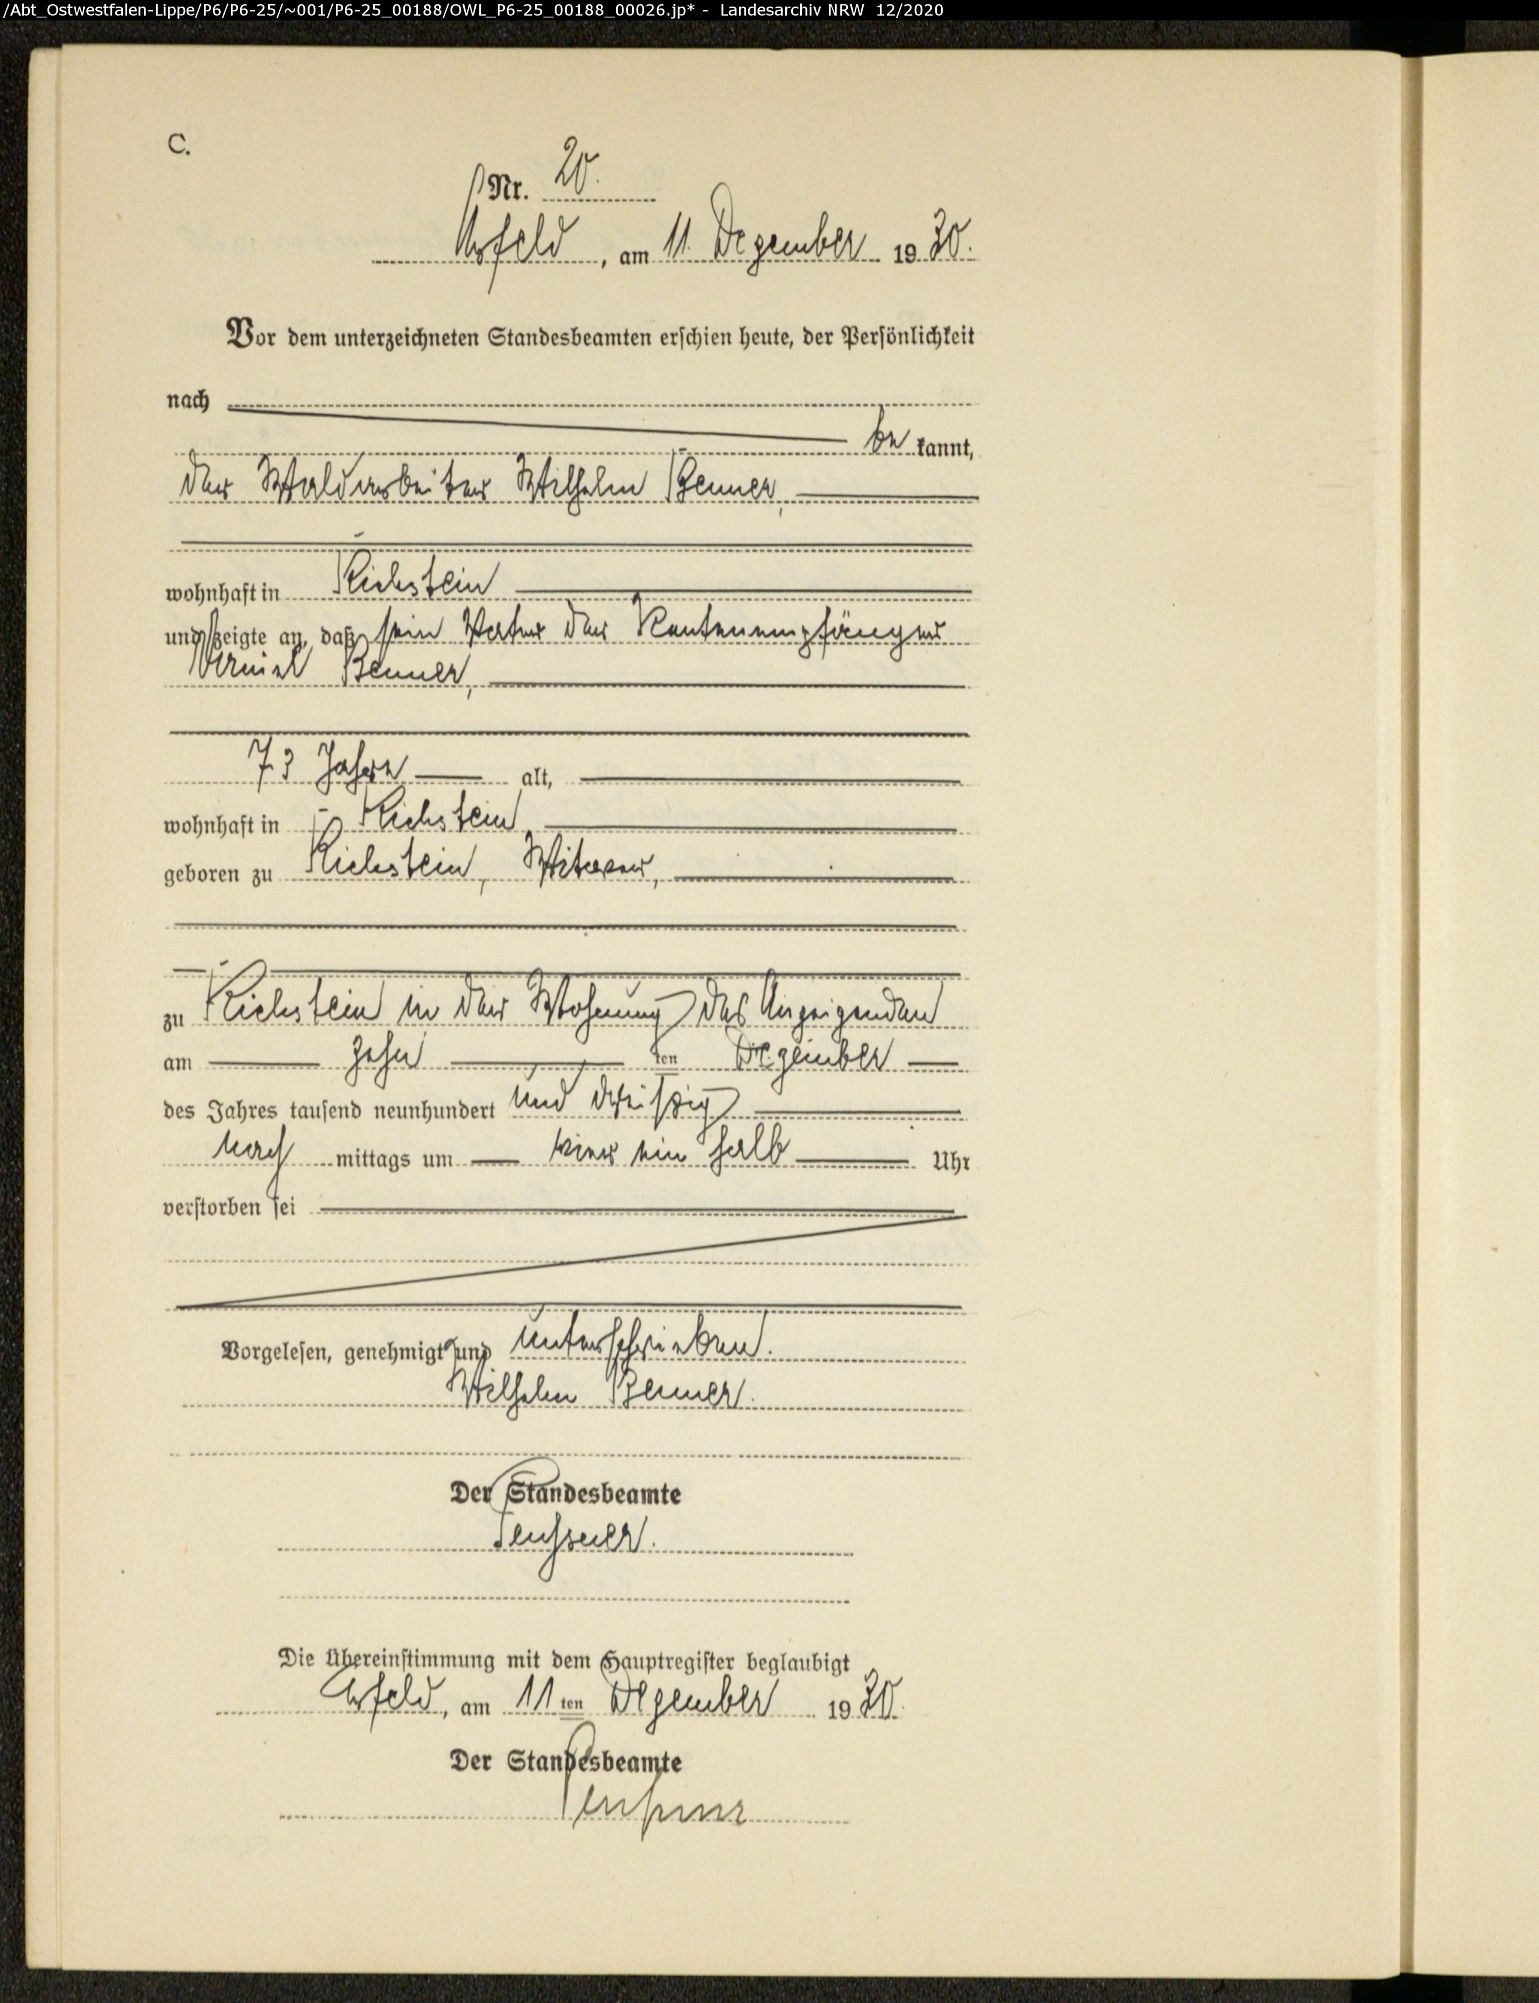 /Abt_Ostwestfalen-Lippe/P6/P6-25/~001/P6-25_00188/OWL_P6-25_00188_00026.jp* - Landesarchiv NRW 12/2020
C.
Nr. 20.
Arfeld, am 11. Dezember 1930.
Vor dem unterzeichneten Standesbeamten erschien heute, der Persönlichkeit
nach
be kannt,
der Waldarbeiter Wilhelm Benner,
wohnhaft in Richstein
und zeigte an, daß sein Vater der Rentenempfänger
Benner,
73 Jahre alt,
wohnhaft in Richstein
geboren zu Richstein, Witwer,
zu Richstein in der Wohnung des Anzeigenden
am zehn ten Dezember
des Jahres tausend neunhundert und dreißig
nach mittags um vier ein halb Uhr
verstorben sei
Vorgelesen, genehmigt und unterschrieben.
Wilhelm Benner.
Der Standesbeamte
Die Übereinstimmung mit dem Hauptregister beglaubigt
Arfeld, am 11 ten Dezember 1930.
Der Standesbeamte